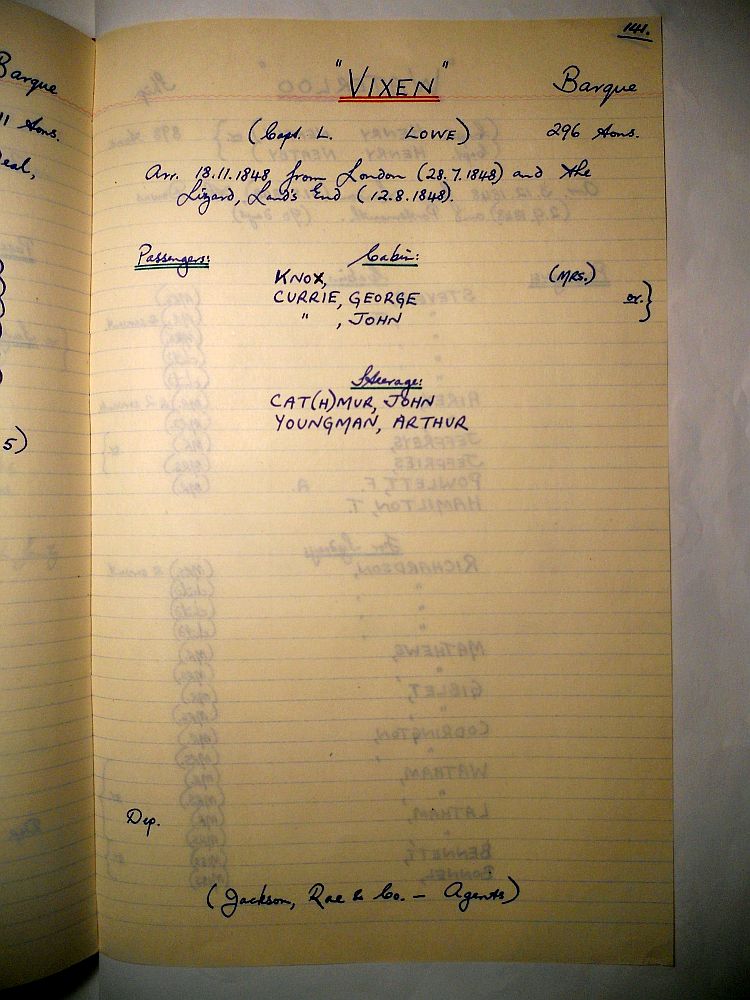 141.
"VIXEN" Barque
(Capt. L. LOWE) 296 tons.
Arr. 18.11.1848 from London (28.7.1848) and the
Lizard, Land's End (12.8.1848).
Passengers: Cabin:
KNOX, (MRS.)
CURRIE, GEORGE
" , JOHN
Steerage:
CAT(H)MUR, JOHN
YOUNGMAN, ARTHUR
Dep.
(Jackson, Rae & Co. - Agents)
Barque
11 tons.
eal,
5)